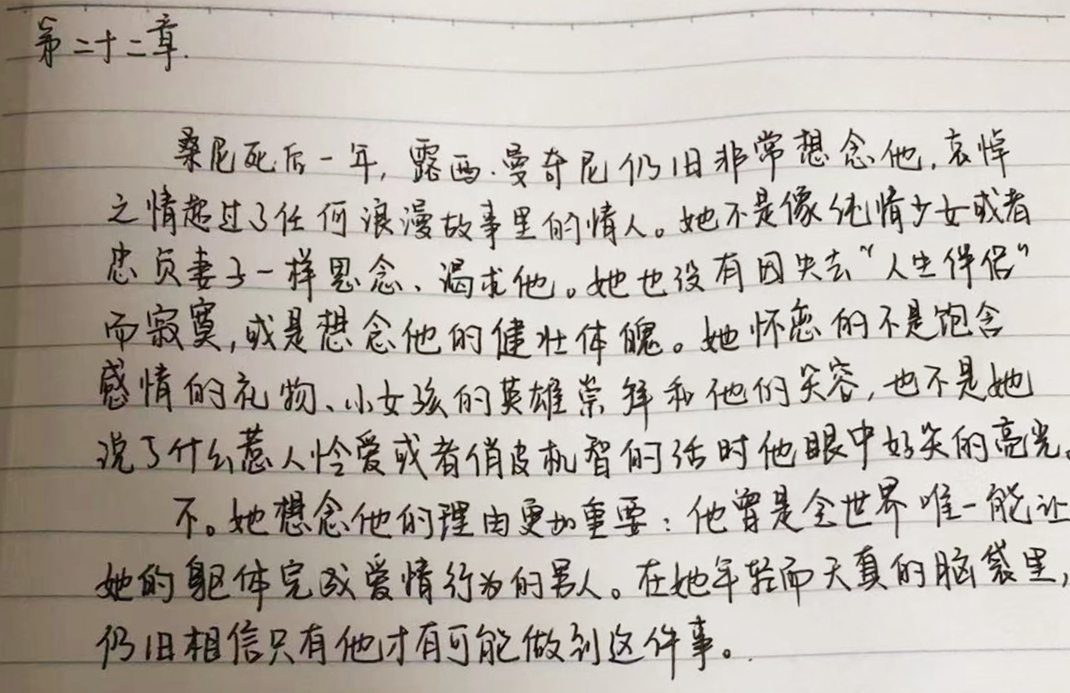 第二十二章.
桑尼死后一年,露西·曼奇尼仍旧非常想念他,哀悼
之情超过了任何浪漫故事里的情人。她不是像纯情少女或者
忠贞妻子一样思念、渴求他。她也没有因失去“人生伴侣”
而寂寞,或是想念他的健壮体魄。她怀恋的不是饱含
感情的礼物、小女孩的英雄崇拜和他的笑容,也不是她
说了什么惹人怜爱或者俏皮机智的话时他眼中好笑的亮光。
不。她想念他的理由更加重要:他曾是全世界唯一能让
她的躯体完成爱情行为的男人。在她年轻而天真的脑袋里,
仍旧相信只有他才有可能做到这件事。